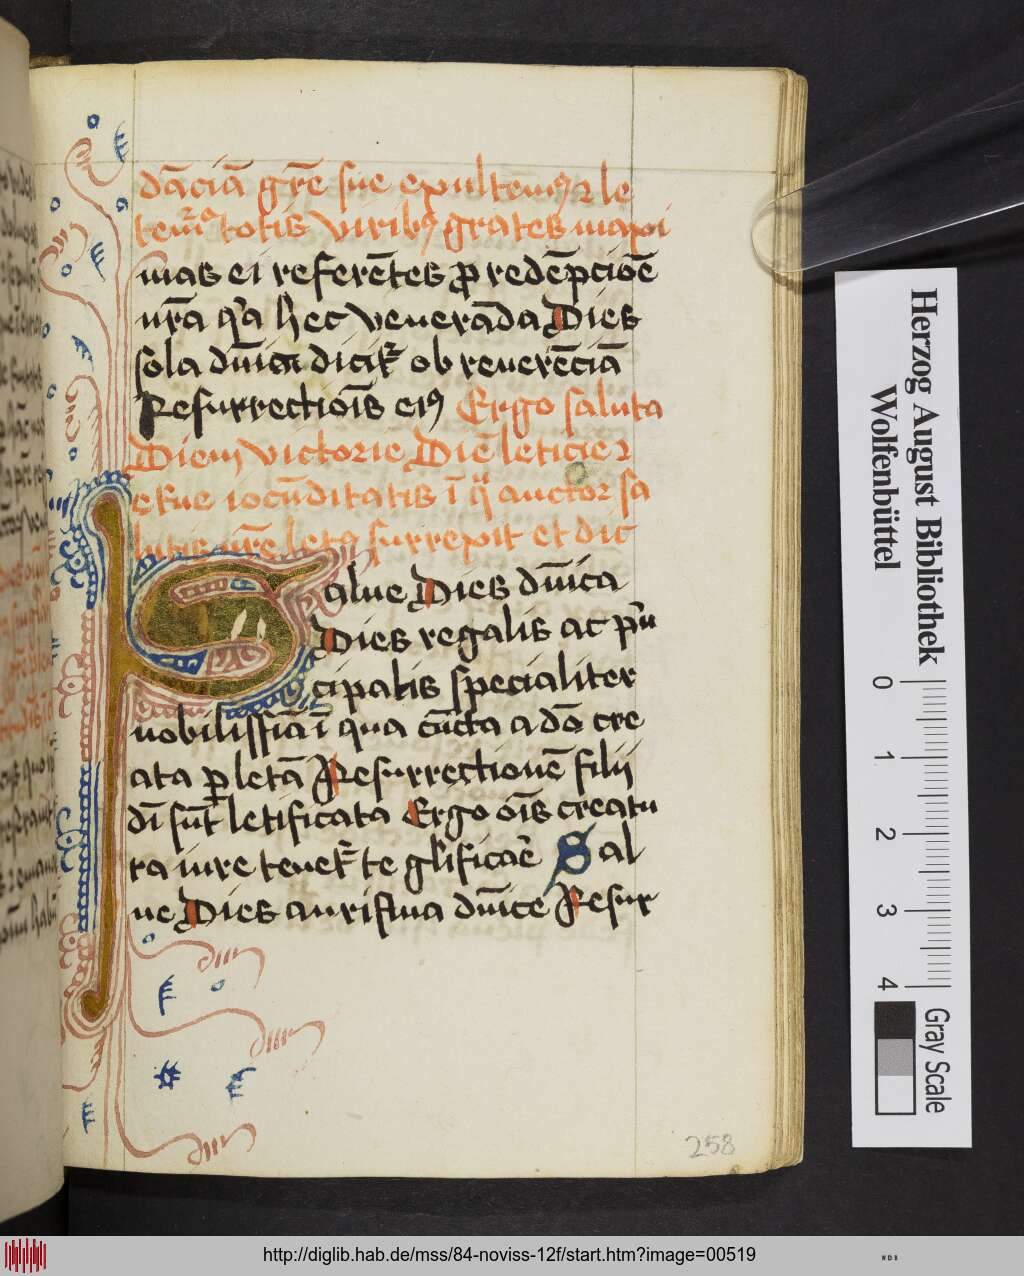 dāciā gr̄e sue exultemꝰ ⁊ le
temr̄ꝰ totis viribꝰ grates maxi
mas ei referētes ꝓ redēpcioē
nr̄a qͥa hec venerāda Dies
sola dn̄ica dicit᷑ ob reuerēciā
Resurrectiōis eiꝰ Ergo saluta
Diem victorie Diē leticie ⁊
etue iocūditatis ī qͣ auctor sa
lutis nr̄e letꝰ surrexit et dic
Salue Dies dn̄ica
Dies regalis ac pͥn
cipalis specialiter
nobilissīa ī qua cūcta a dō cre
ata ꝑ letā Resurrectionē filij
dī sūt letificata Ergo oīs creatu
ra iure tenet᷑ te gl̄ificaē Sal
ue Dies aurisma dn̄ice Resur
258
Herzog August Bibliothek
Wolfenbüttel
0 1 2 3 4
Gray Scale
http://diglib.hab.de/mss/84-noviss-12f/start.htm?image=00519